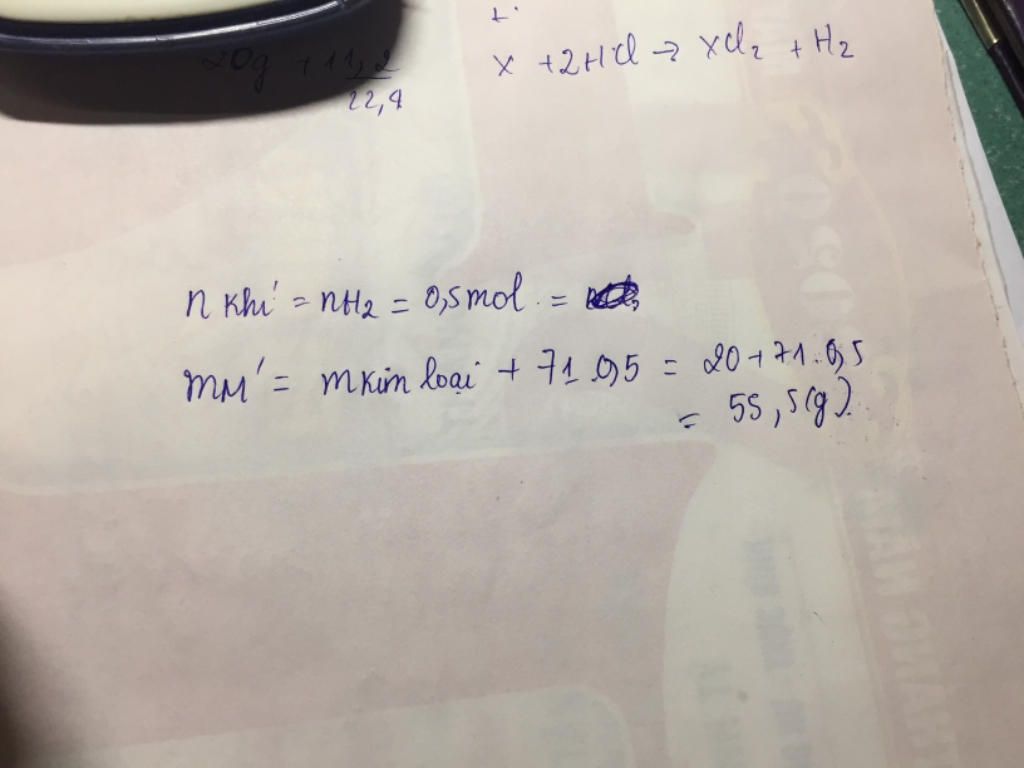 20g + 11,2
22,4
X + 2HCl → XCl₂ + H₂
n khí = nH₂ = 0,5 mol. =
mM' = mkim loại + 71.0,5 = 20 + 71.0,5
= 55,5(g).